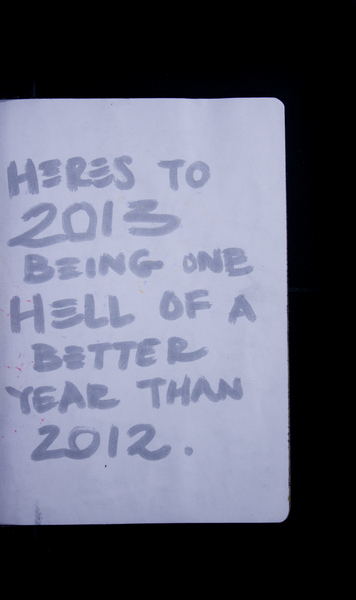 HERES TO
2013
BEING ONE
HELL OF A
BETTER
YEAR THAN
2012.